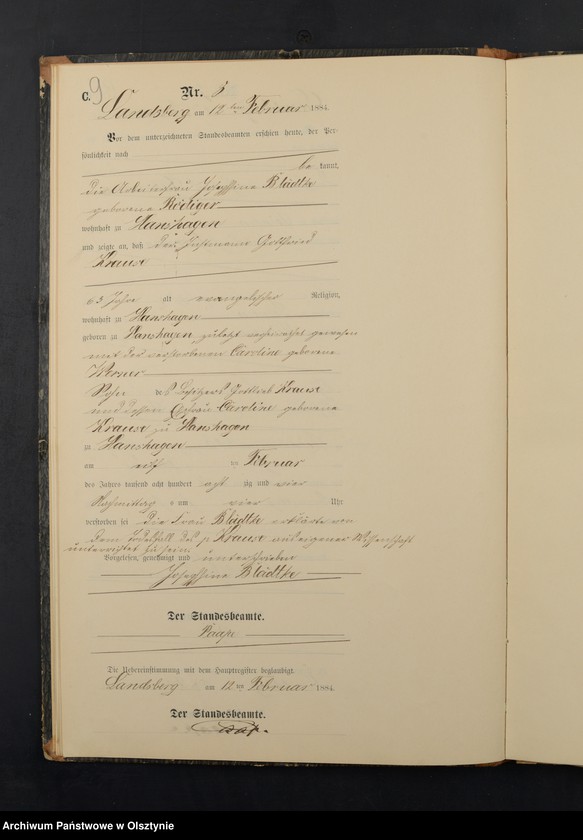 C. 9
Nr. 8
Landsberg am 12 ten Februar 1884.
Vor dem unterzeichneten Standesbeamten erschien heute, der Per-
sönlichkeit nach
be kannt,
die Arbeiterfrau Josephine Bladtke
geborene Rediger
wohnhaft zu Hanshagen
und zeigte an, daß der Instmann Gottfried
Krause
63 Jahre alt evangelischer Religion,
wohnhaft zu Hanshagen
geboren zu Hanshagen, zuletzt verheirathet gewesen
mit der verstorbenen Caroline geborene
Werner
Sohn des Besitzers Gottlieb Krause
und dessen Ehefrau Caroline geborene
Krause zu Hanshagen
zu Hanshagen
am elf ten Februar
des Jahres tausend acht hundert acht zig und vier
Nachmittag s um vier Uhr
verstorben sei die Frau Bladtke erklärte von
dem Todesfall des p Krause aus eigener Wissenschaft
unterrichtet zu sein.
Vorgelesen, genehmigt und unterschrieben
Josephine Bladtke
Der Standesbeamte.
Die Uebereinstimmung mit dem Hauptregister beglaubigt.
Landsberg am 12 ten Februar 1884.
Der Standesbeamte.
Archiwum Państwowe w Olsztynie